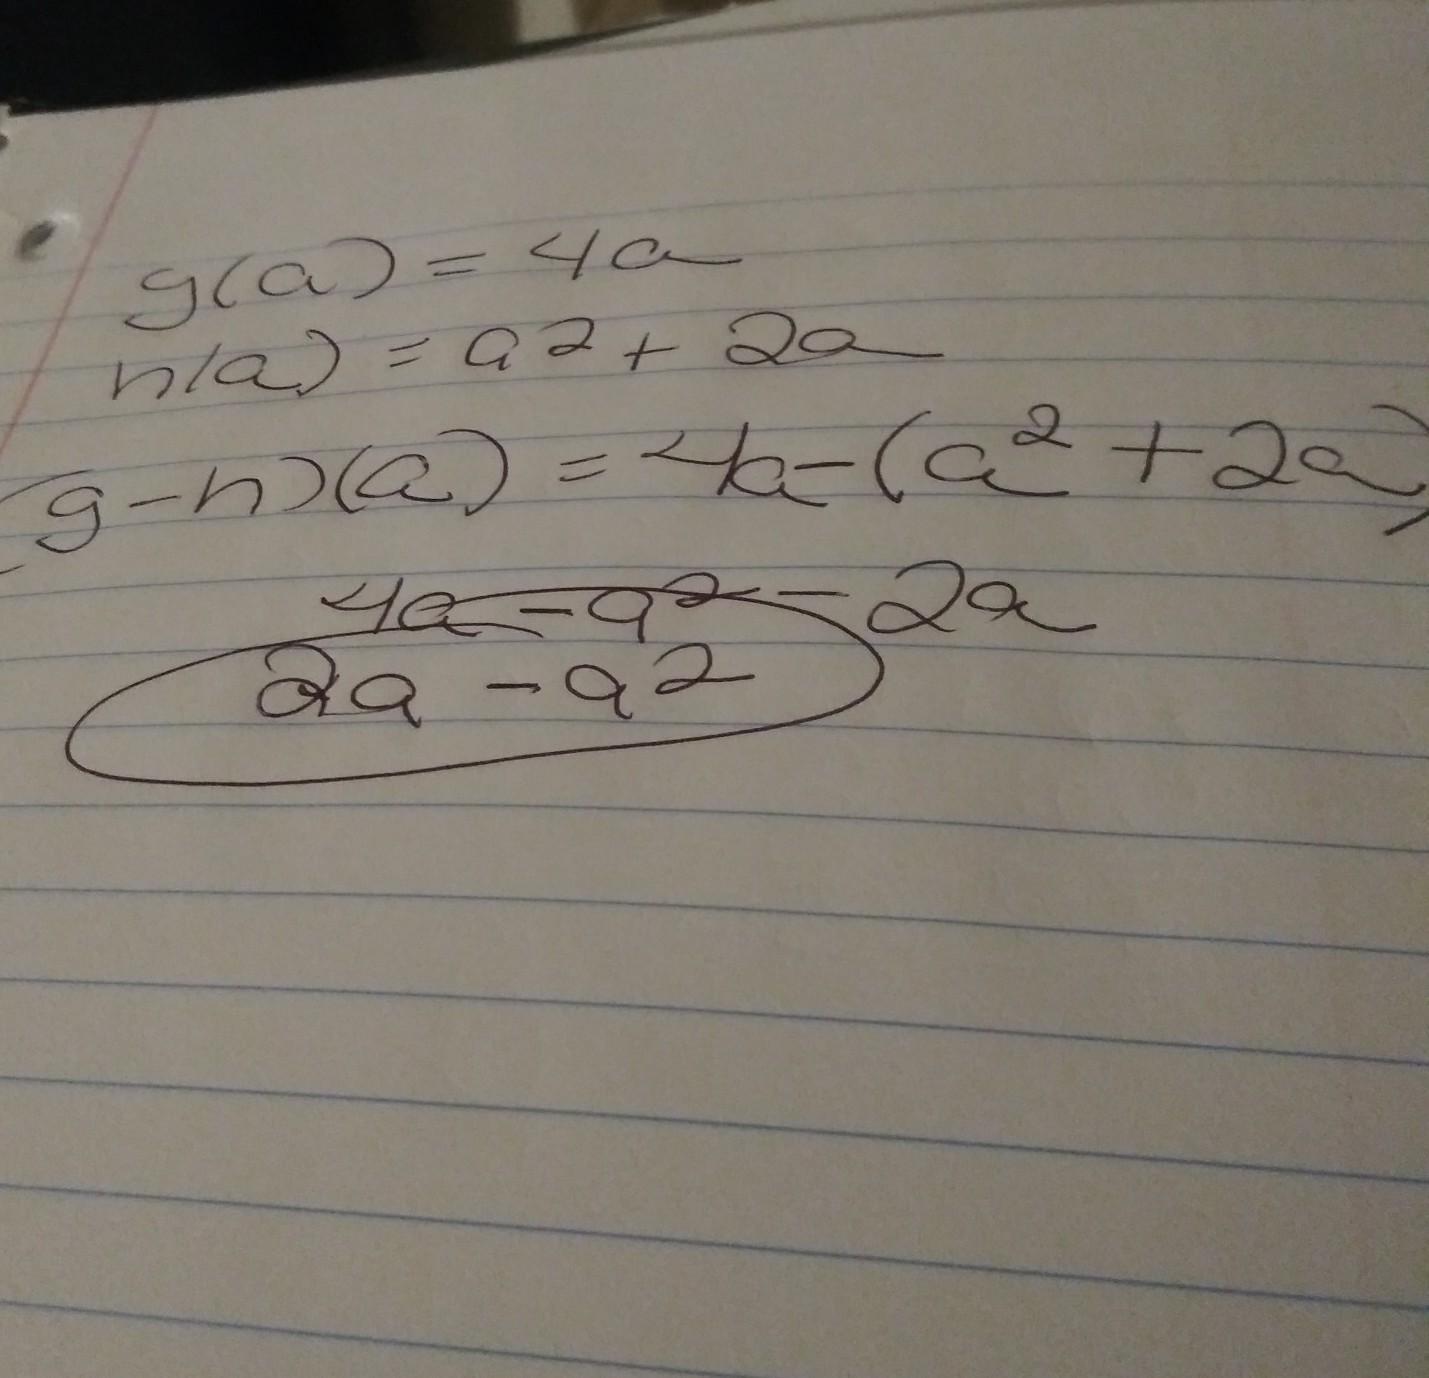 g(a) = 4a
n(a) = a2 + 2a
(g-n)(a) = 4a-(a² + 2a)
4a - a² - 2a
2a - a²